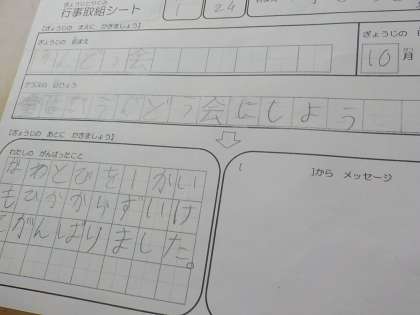 ぎょうじとりくみ
行事取組シート
1
24
【ぎょうじの まえに かきましょう】
ぎょうじの 名まえ
うんどう会
ぎょうじの
10月
クラスの 目ひょう
うんどう会にしよう
【ぎょうじの あとに かきましょう】
わたしの がんばったこと
なわとびを1かい
もひかからずいけ
がんばりました。
( )から メッセージ